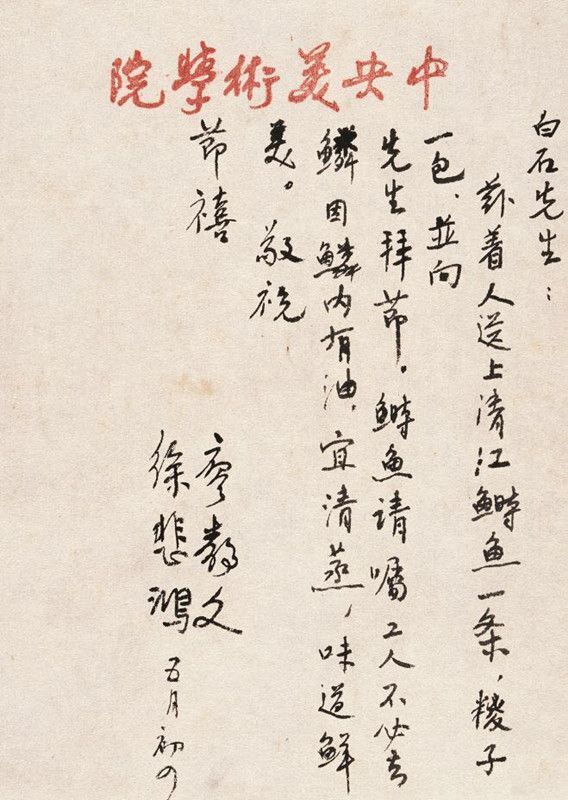 中央美術學院
白石先生：
兹着人送上清江鰣魚一条，糉子
一包、並向
先生拜節。鰣魚請囑工人不必去
鱗因鱗内有油，宜清蒸，味道鮮
美。敬祝
節禧
廖静文
徐悲鴻 五月初四